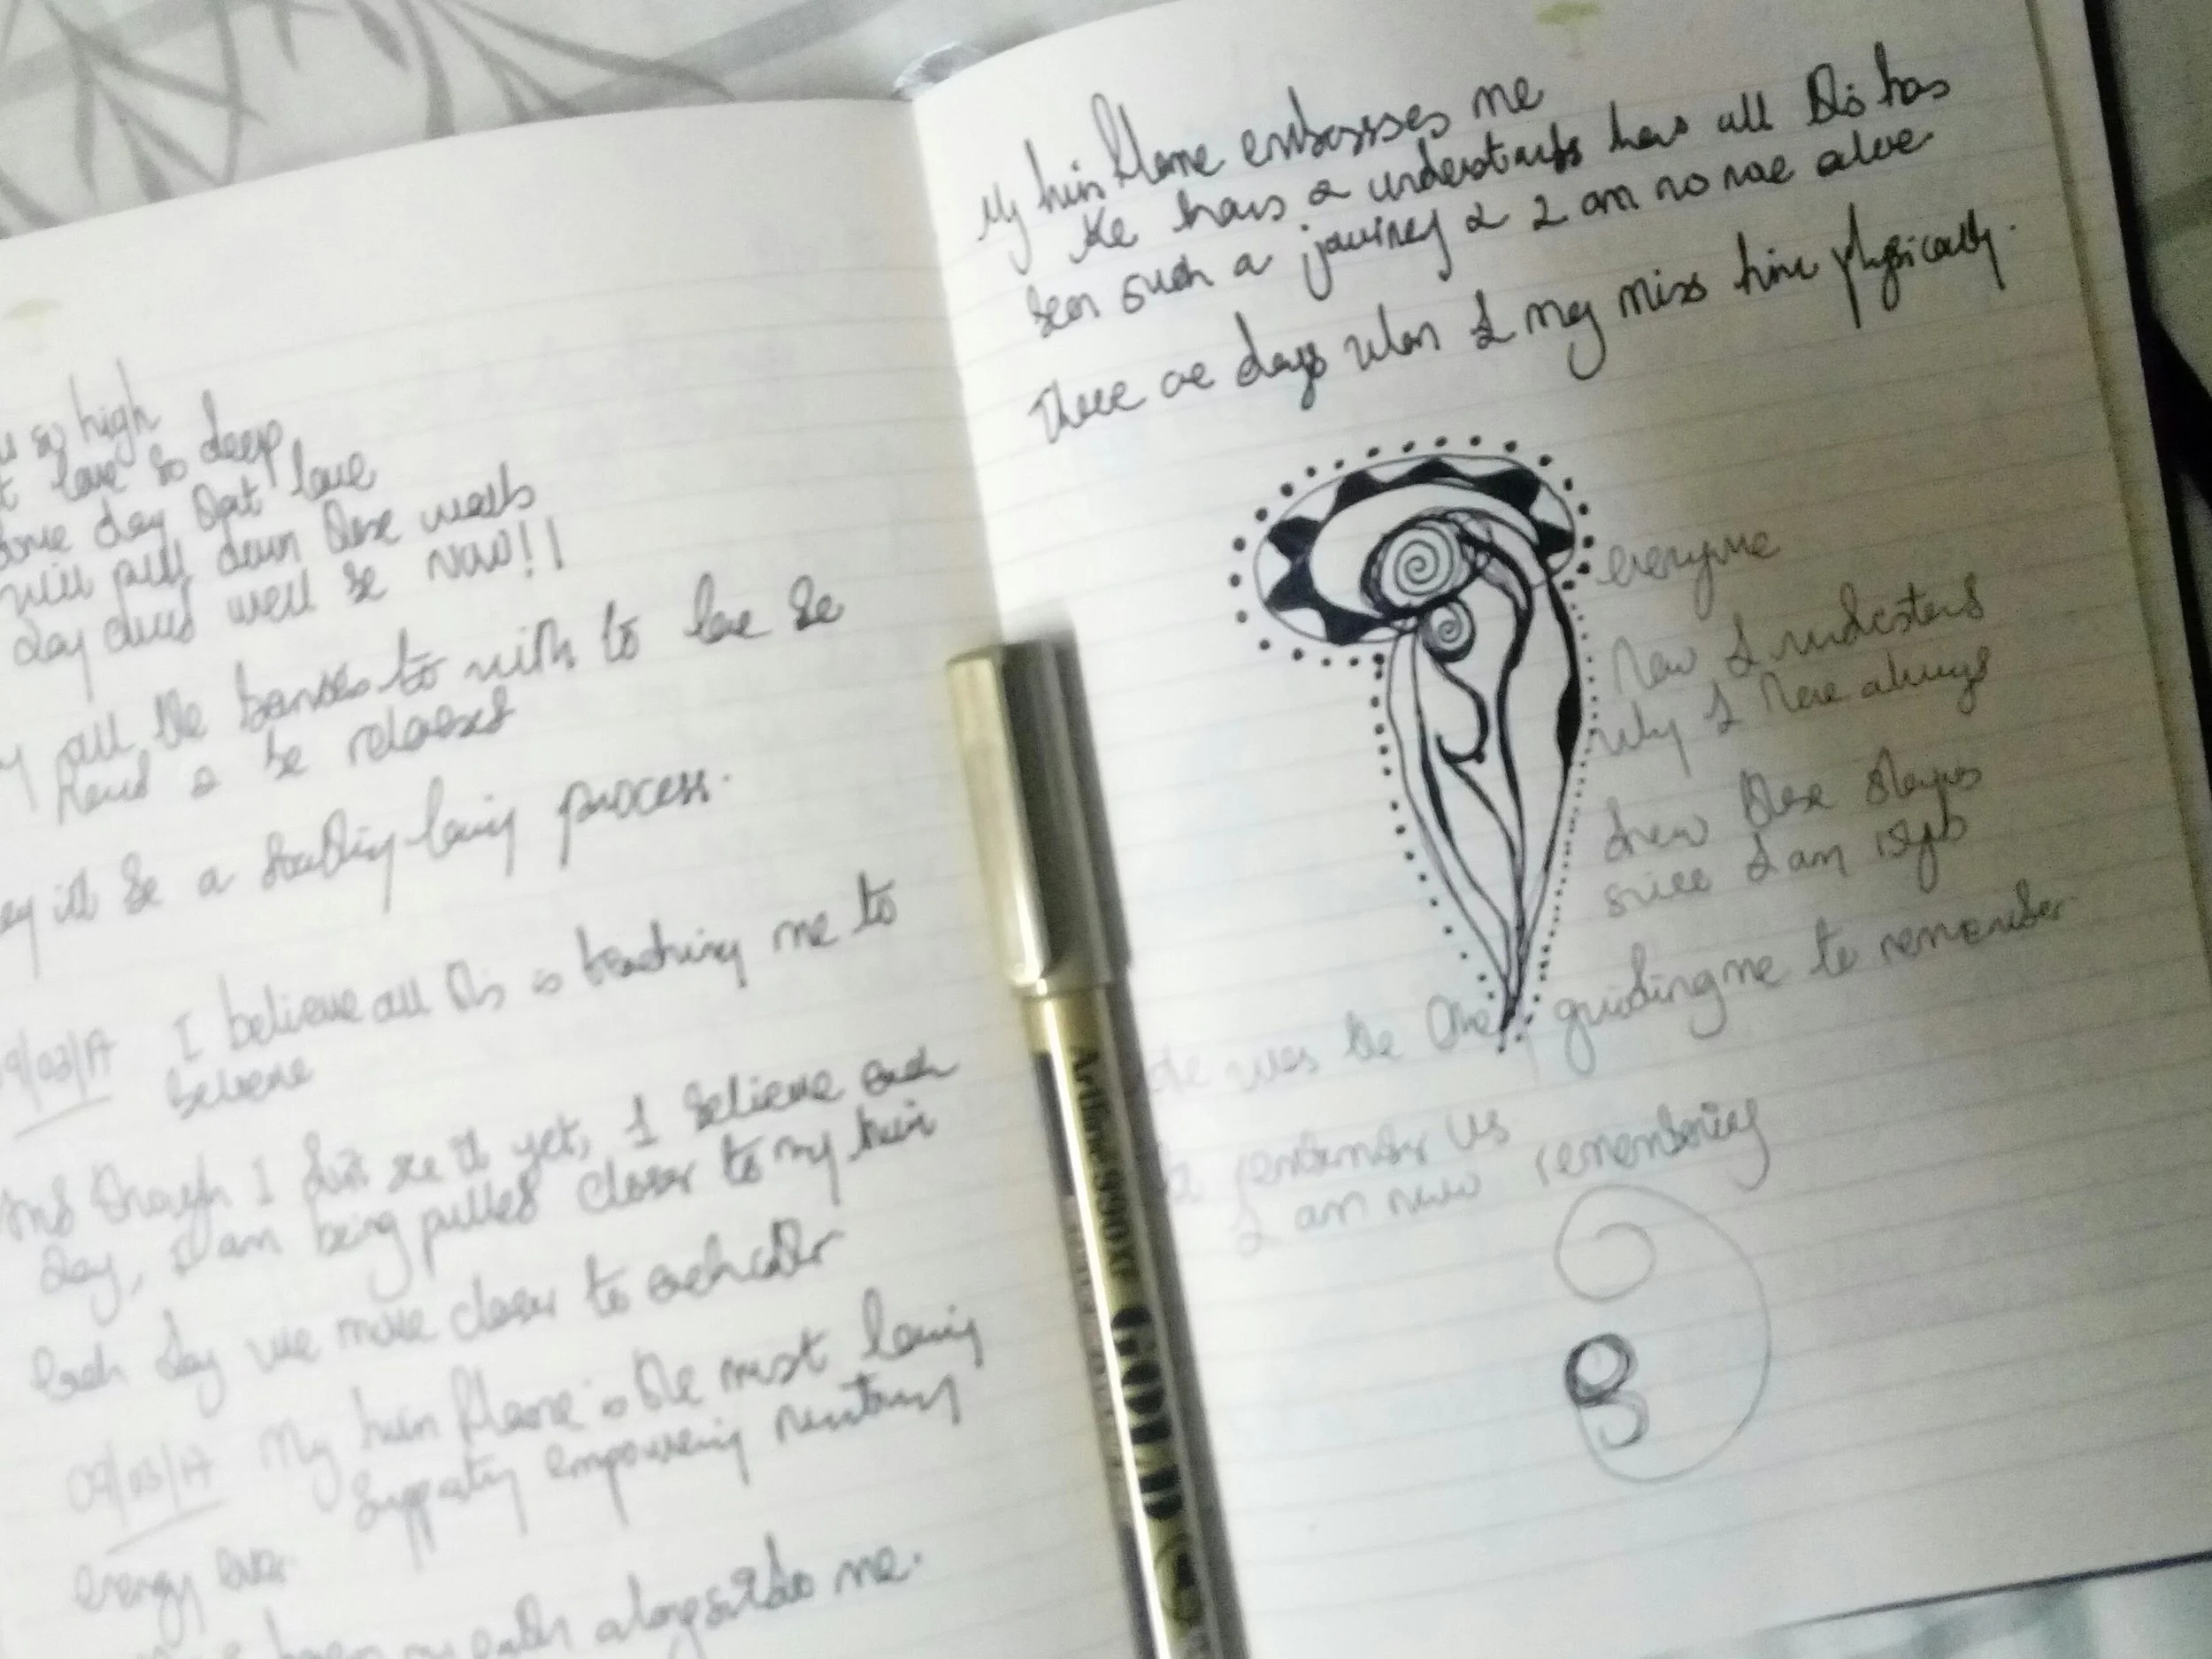 so high
love so deep
some day that love
will pull down these walls
day could well be now!!
all the barriers to with to love be
heard & be released
it be a soothing loving process.
I believe all this is teaching me to
believe
And though I don't see it yet, I believe each
day, I am being pulled closer to my twin
Each day we move closer to each other
09/03/17 My twin flame is the most loving
supporting empowering nurturing
energy ever
alongside me.
My twin flame embraces me
He knows & understands how all this has
been such a journey & I am no more alone
There are days when I may miss him physically.
everyone
Now I understand
why I have always
drew these shapes
since I am
was the One guiding me to remember
remember us
I am now remembering
Artline 990XF
GOLD